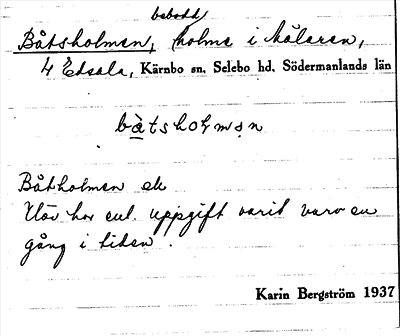 bebodd
Båtsholmen, holme i Mälaren,
4 Edsala, Kärnbo sn. Selebo hd. Södermanlands län
bàtshołmɘn
Båtholmen ek
har enl. uppgift varit varv en
gång i tiden.
Karin Bergström 1937